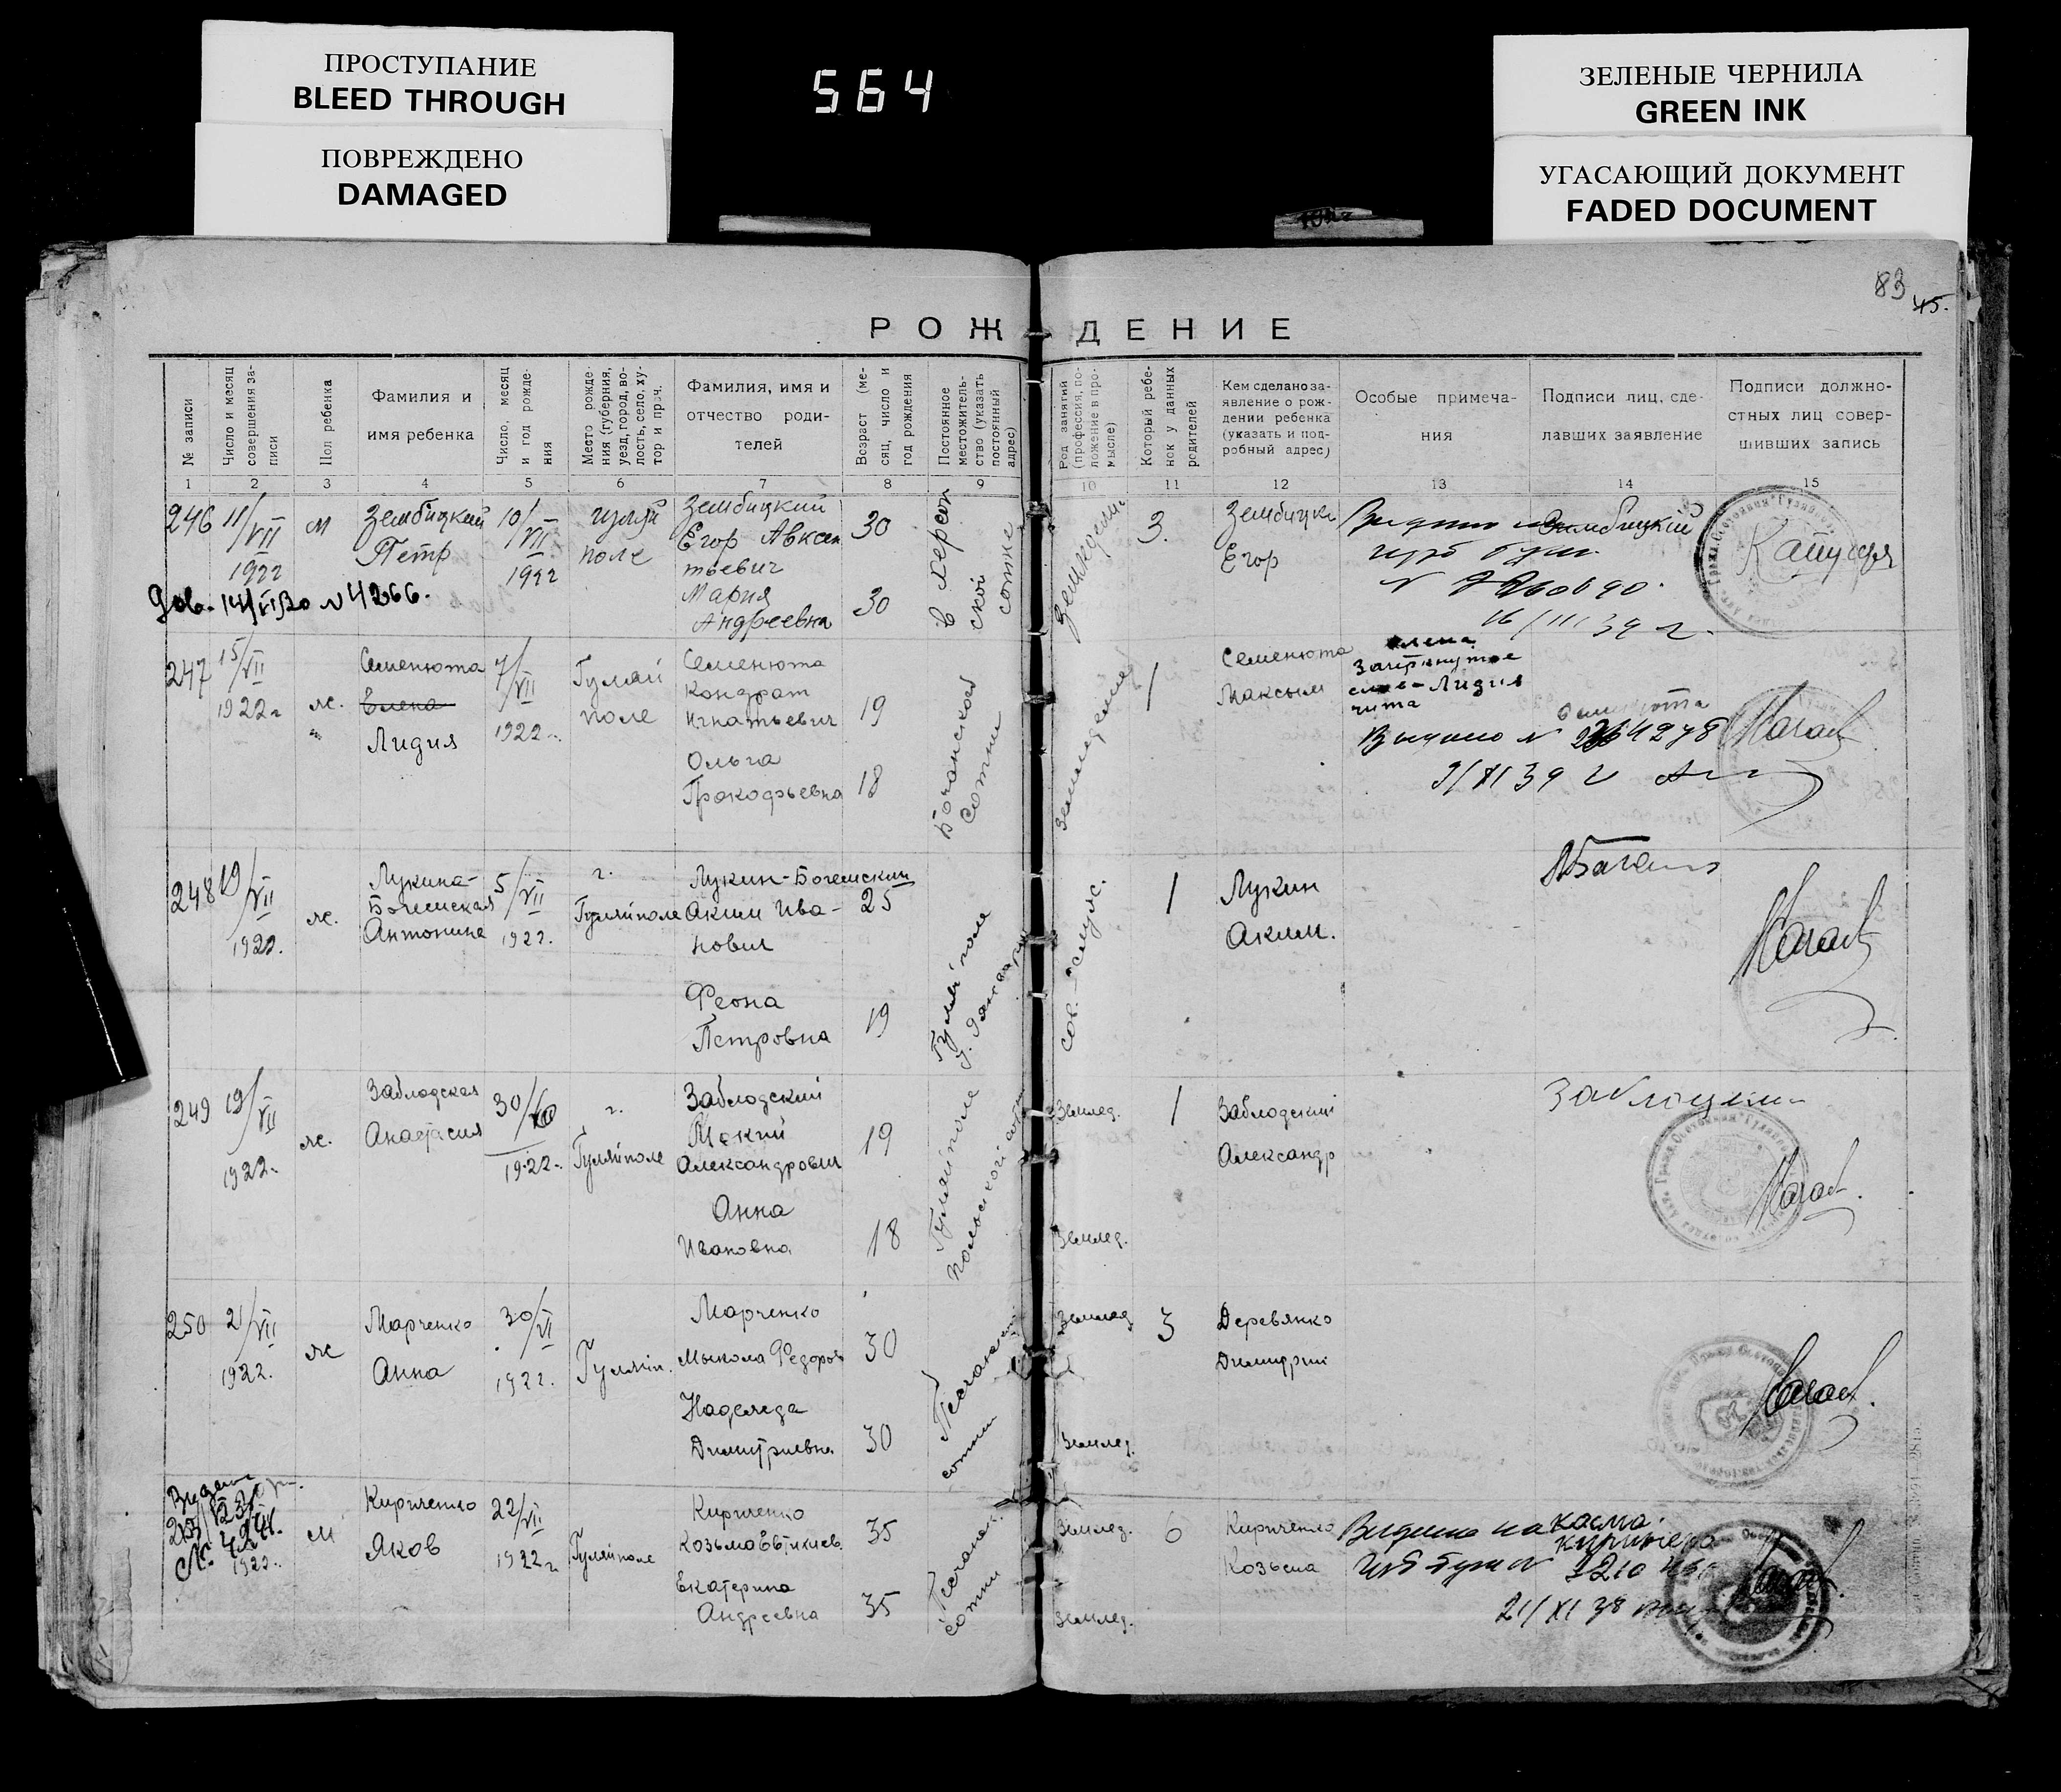 ПРОСТУПАНИЕ
BLEED THROUGH
ПОВРЕЖДЕНО
DAMAGED
564
ЗЕЛЕНЫЕ ЧЕРНИЛА
GREEN INK
УГАСАЮЩИЙ ДОКУМЕНТ
FADED DOCUMENT
83
45.
РОЖДЕНИЕ
№ записи
Число и месяц совершения за-
писи
Пол ребенка
Фамилия и
имя ребенка
Число, месяц
и год рожде-
ния
Место рожде-
ния (губерния,
уезд, город, во-
лость, село, ху-
тор и проч.
Фамилия, имя и
отчество роди-
телей
Возраст (ме-
сяц, число и
год рождения
Постоянное
местожитель-
ство (указать
постоянный
адрес)
Род занятий
(профессия, по-
ложение в про-
мысле)
Который ребе-
нок у данных
родителей
Кем сделано за-
явление о рож-
дении ребенка
(указать и под-
робный адрес)
Особые примеча-
ния
Подписи лиц, сде-
лавших заявление
Подписи должно-
стных лиц совер-
шивших запись
1 2 3 4 5 6 7 8 9 10 11 12 13 14 15
246
11/VII
1922
м
Зембицкий
Петр
10/VII
1922
гуляй
поле
Зембицкий
Егор Авксен
тьевич
30
Мария
Андреевна
30
в херсон
ской
сотне
3.
Егор
Зембицкий
16/III 39 г.
247
15/VII
1922 г
ж.
Семенюта
Елена
Лидия
7/VII
1922
Гуляй
поле
Семенюта
Кондрат
Игнатьевич
19
Ольга
Прокофьевна
18
Бочанской
Сотни
1
Семенюта
Максым
Зачеркнутое
Лидия
чита
248
19/VII
1922.
ж.
Лукина-
Богемская
Антонина
5/VII
1922.
г.
Гуляйполе
Лукин-Богемский
Аким Ива-
нович
25
Феона
Петровна
19
Гуляйполе
1
Лукин
Аким.
249
19/VII
1922.
ж.
Заблодская
Анастасия
30/
1922.
г.
Гуляйполе
Заблодский
Александрович
19
Анна
Ивановна
18
Гуляйполе
Польской
Землед.
Землед.
1
Заблодский
Александр
250
21/VII
1922.
ж
Марченко
Анна
30/VI
1922.
Гуляйп.
Марченко
Мыкола Федоров
30
Надежда
Димитриевна
30
сотни
Землед
Землед.
3
Деревянко
Димитрий
1922.
м
Кириченко
Яков
22/VII
1922 г
Гуляйполе
Кириченко
Козьма Евтихиев.
35
Екатерина
Андреевна
35
сотни
Землед.
Землед.
6
Кириченко
Козьма
21/XI 38